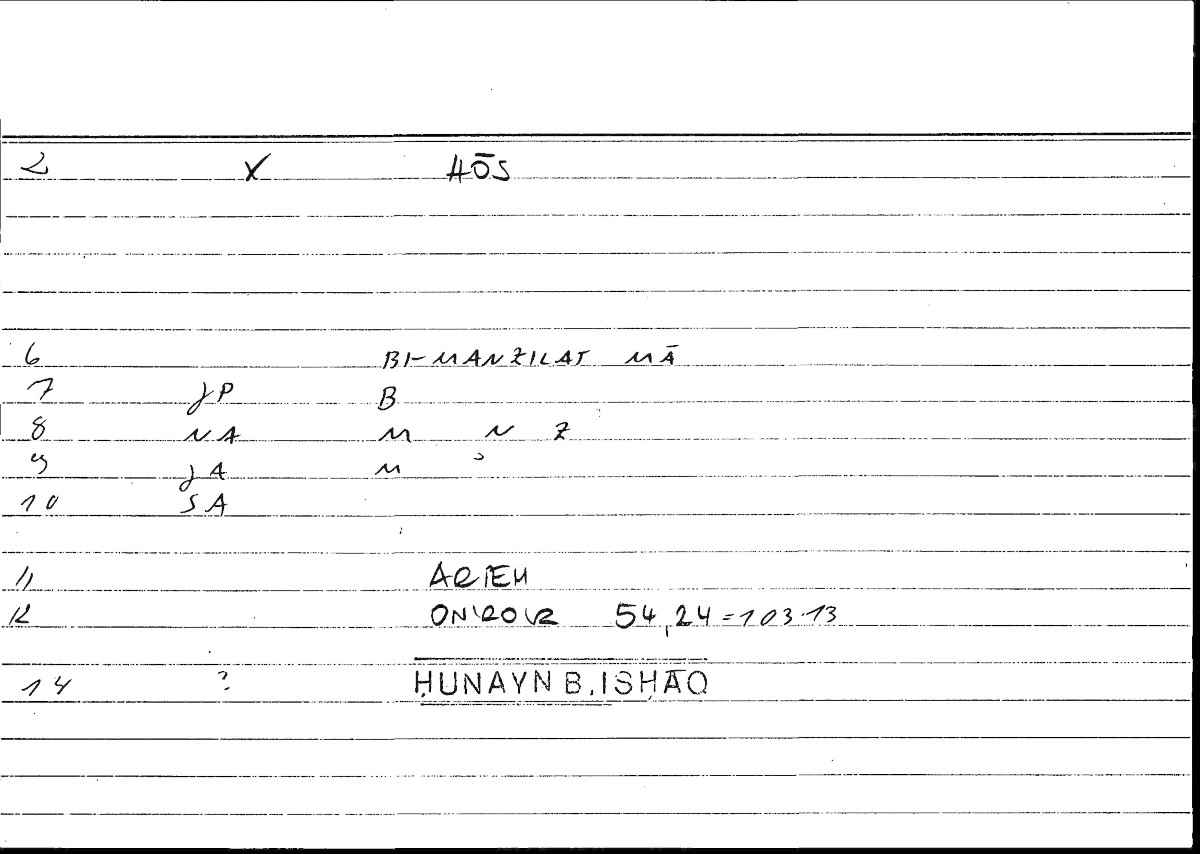 2 X HŌS
6 BI-MANZILAT MĀ
7 JP B
8 NA M N Z
9 JA M ʾ
10 SA
11 ARTEM
12 ONIROCR 54,24=103.13
14 ? ḤUNAYN B. ISḤĀQ